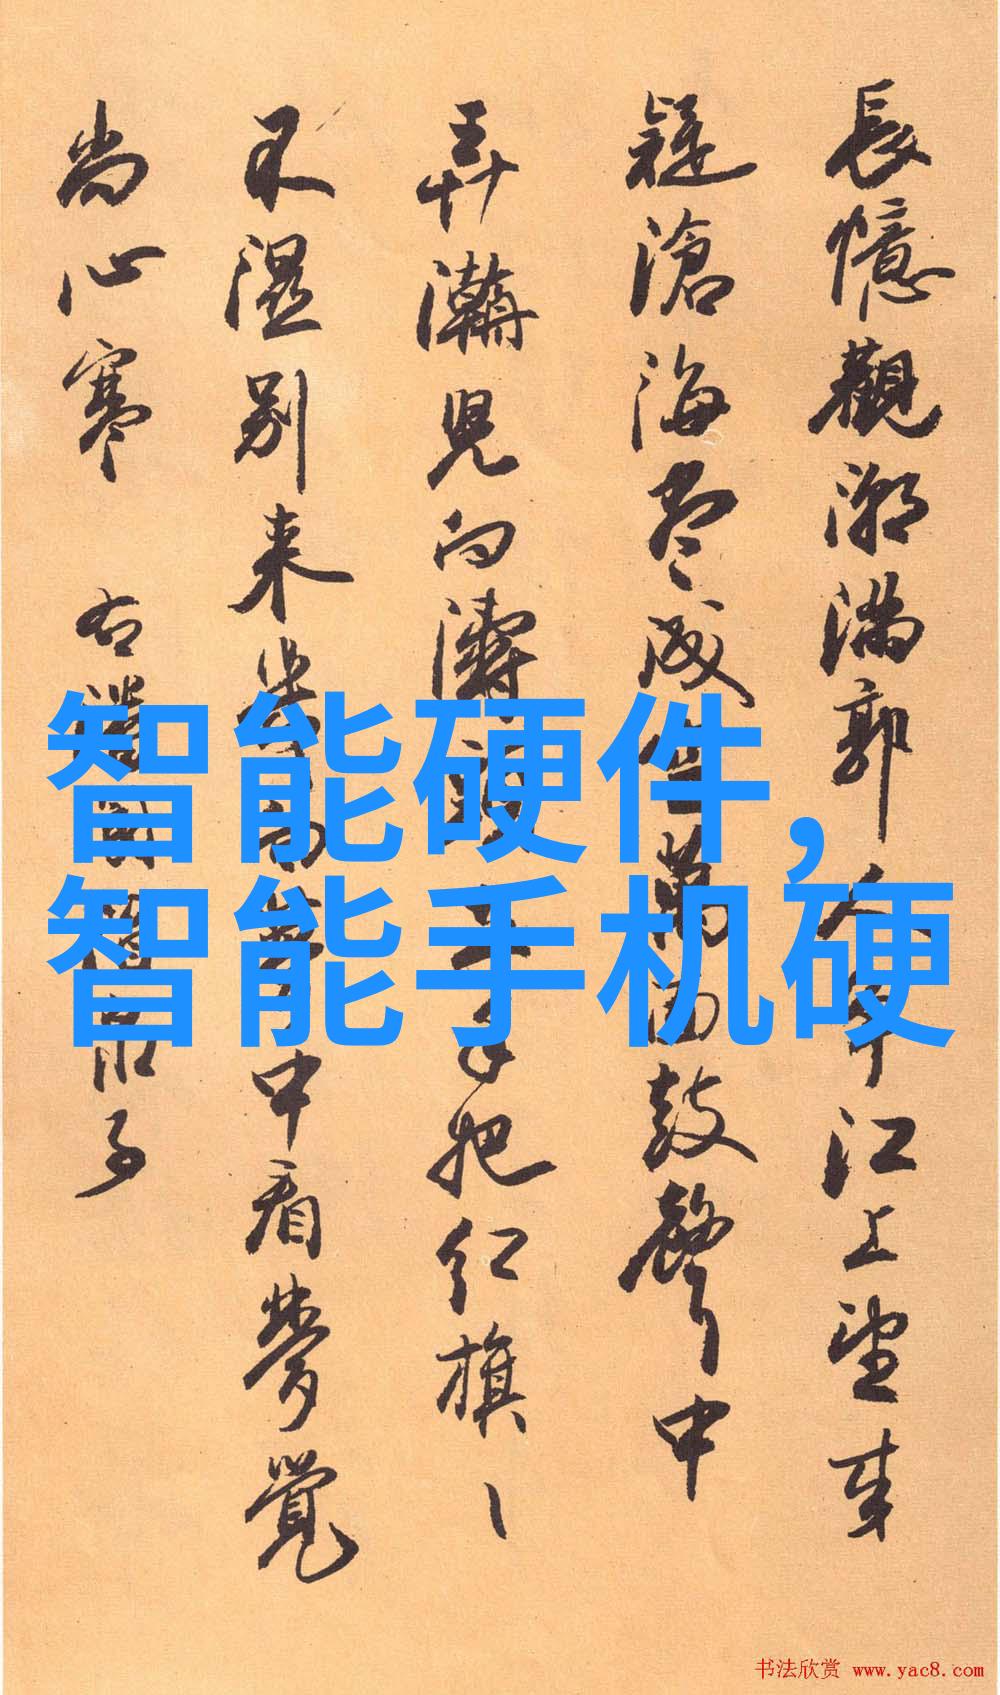 長憶觀潮滿郭人爭江上望來
疑滄海盡成空萬面鼓聲中
弄潮兒向濤手把紅旗ヽ
不濕別來向夢中看夢覺
尚心寒 右子
智能硬件,
智能手机硬
书法欣赏 www.yac8.com